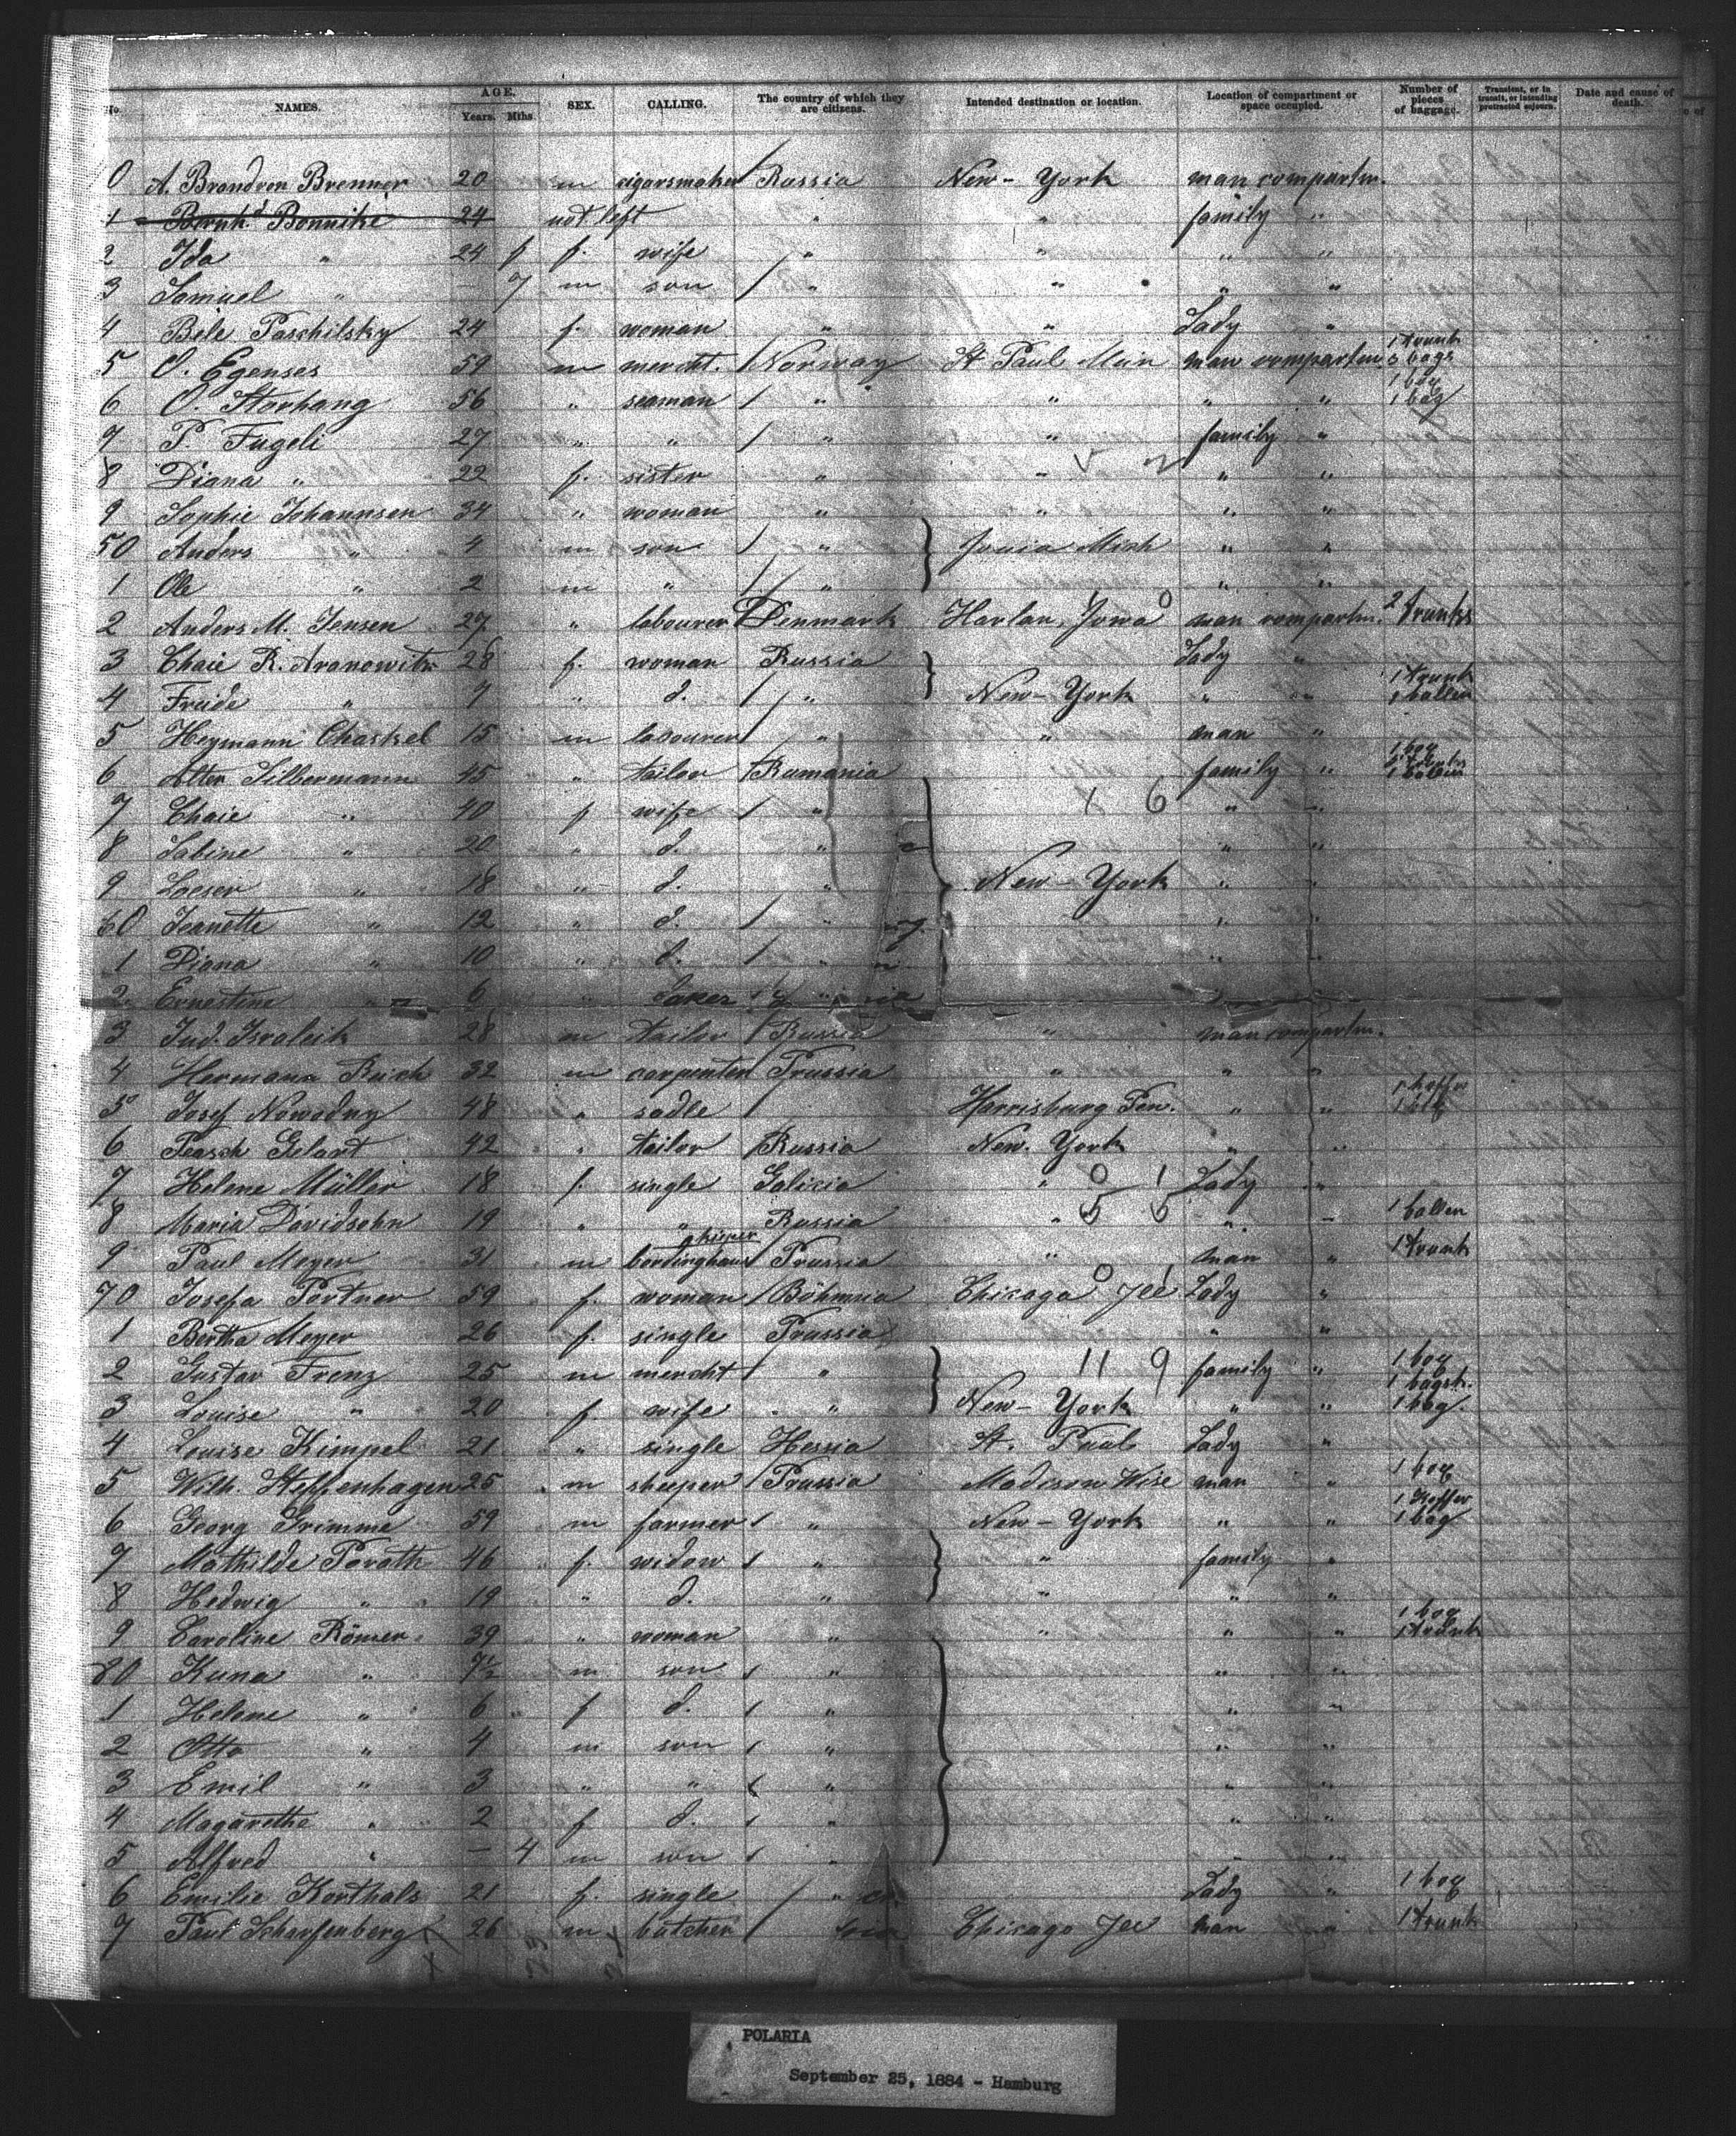 No. NAMES. AGE. Years. Mths. SEX. CALLING. The country of which they are citizens. Intended destination or location. Location of compartment or space occupied. Number of pieces of baggage. Transient, or in transit, or intending protracted sojourn. Date and cause of death.
0 A. Brandron Brenner 20 m cigarsmaker Russia New-York man compartm.
1 Bernhd. Bonnike 24 not left " " family "
2 Ida " 24 f. wife " " " "
3 Samuel " 7 m son " " " "
4 Bele Paschilsky 24 f. woman " " Lady "
5 O. Egenses 59 m mercht. Norway St Paul Min man compartm. 1 trunk 3 bags
6 O. Storhang 56 " seaman " " " " 1 box 1 bag
7 P. Fugeli 27 " " " " family "
8 Diana " 22 f. sister " " " "
9 Sophie Johannsen 34 " woman " " " "
50 Anders " 4 m son " Jonia Mich " "
1 Ole " 2 m " " " "
2 Anders M. Jensen 27 " labourer Denmark Harlan, Jowa man compartm. 2 trunks
3 Chaie R. Aranowitz 28 f. woman Russia Lady "
4 Freide " 7 " d. " New-York " " 1 trunk 1 ballen
5 Heymann Chaskel 15 m labourer " " man "
6 Alter Silbermann 45 " tailor Rumania family " 1 box
7 Chaie " 40 f wife " 1 6 " "
8 Sabine " 20 " d. " " "
9 Loeser " 18 " d. " New-York " "
60 Jeanette " 12 " d. " " "
1 Diana " 10 " d. " " "
2 Ernestine " 6 "
3 Jud. Israleit 28 m tailor Russia " man compartm.
4 Hermann Reich 32 m carpenter Prussia " " "
5 Josef Nowodny 48 " sadle Harrisburg Pen. " "
6 Peasch Gelart 42 " tailor Russia New-York " "
7 Helene Müller 18 f. single Galicia " 0 1 Lady "
8 Maria Davidsohn 19 " " Russia " 5 6 " " 1 ballen
9 Paul Meyer 31 m bordinghaus Prussia " man " 1 trunk
70 Josefa Portner 59 f. woman Böhmia Chicago Jll Lady "
1 Bertha Meyer 26 f. single Prussia " "
2 Gustav Frenz 25 m mercht " 11 9 family " 1 box
3 Louise " 20 f. wife " New-York " " 1 bag
4 Louise Kimpel 21 " single Hessia St. Paul Lady "
5 Wilh. Steffenhagen 25 m sheeper Prussia Madison Wisc man " 1 box
6 Georg Grimme 59 m farmer " New-York " " 1 Koffer 1 bag
7 Mathilde Porath 46 f. widow " " family "
8 Hedwig " 19 " d. " " " "
9 Caroline Römer 39 " woman " " " " 1 box 1 trunk
80 Kuna " 7½ m son " " "
1 Helene " 6 f d. " " "
2 Otto " 4 m son " " "
3 Emil " 3 " " " " "
4 Magaretha " 2 f d. " " "
5 Alfred " - 4 m son " " "
6 Emilie Korthals 21 f. single " Lady " 1 box
7 Paul Scharfenberg 26 m butcher Chicago Jll man " 1 trunk
POLARIA
September 25, 1884 - Hamburg